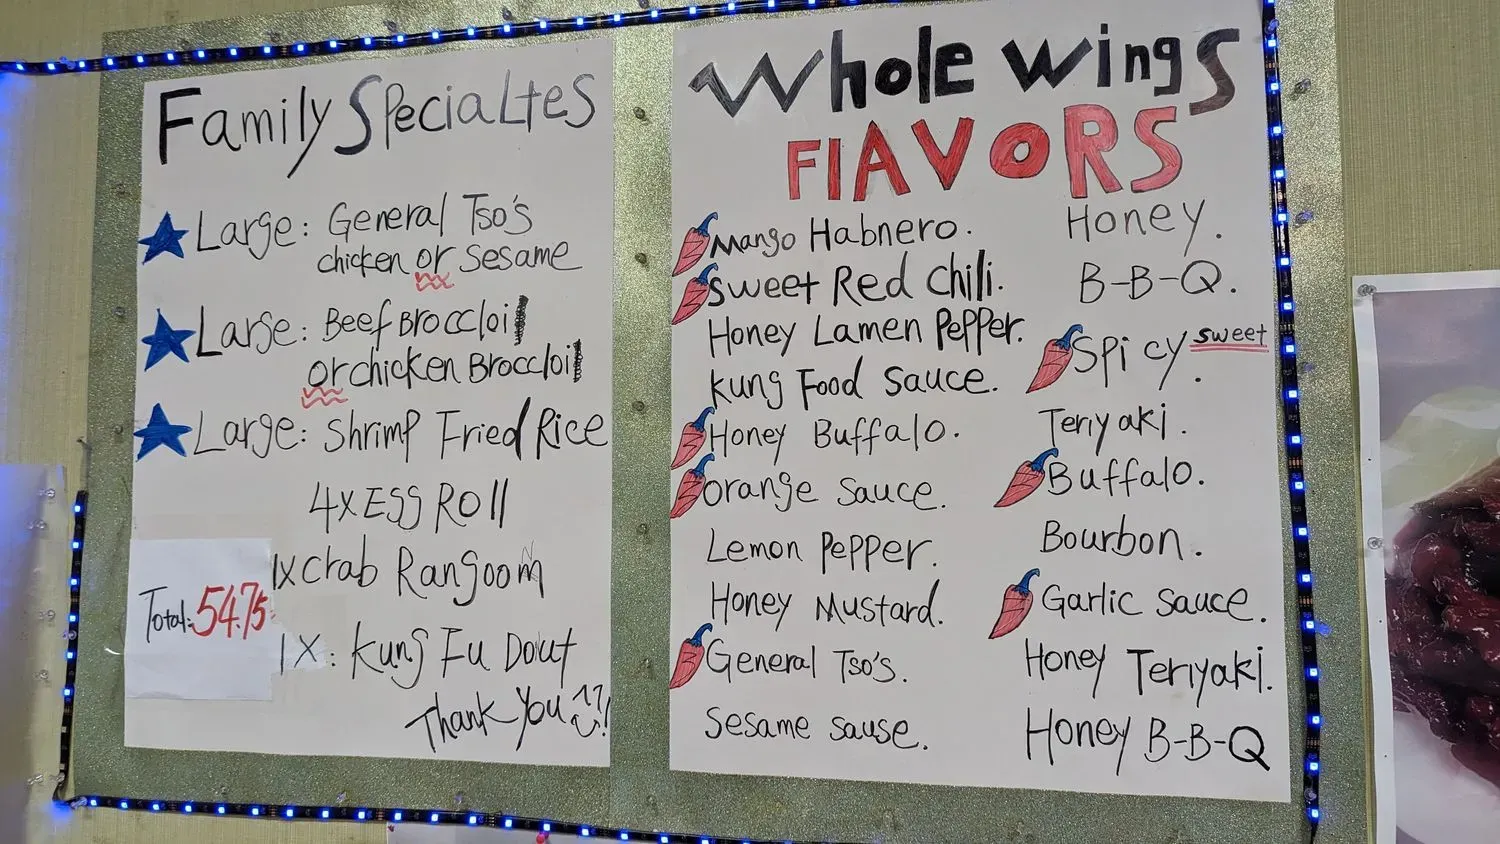 Family Specialtes
Large: General Tso's
chicken or Sesame
Large: Beef Broccloi
or chicken Broccloi
Large: Shrimp Fried Rice
4x Egg Roll
1x crab Rangoon
Total: 54.75
1x: Kung Fu Dout
Thank You !
Whole Wings
FlAVoRS
Mango Habnero.
Sweet Red Chili.
Honey Lamen Pepper.
Kung Food Sauce.
Honey Buffalo.
Orange Sauce.
Lemon Pepper.
Honey Mustard.
General Tso's.
Sesame Sause.
Honey.
B-B-Q.
Spicy sweet.
Teriyaki.
Buffalo.
Bourbon.
Garlic Sauce.
Honey Teriyaki.
Honey B-B-Q